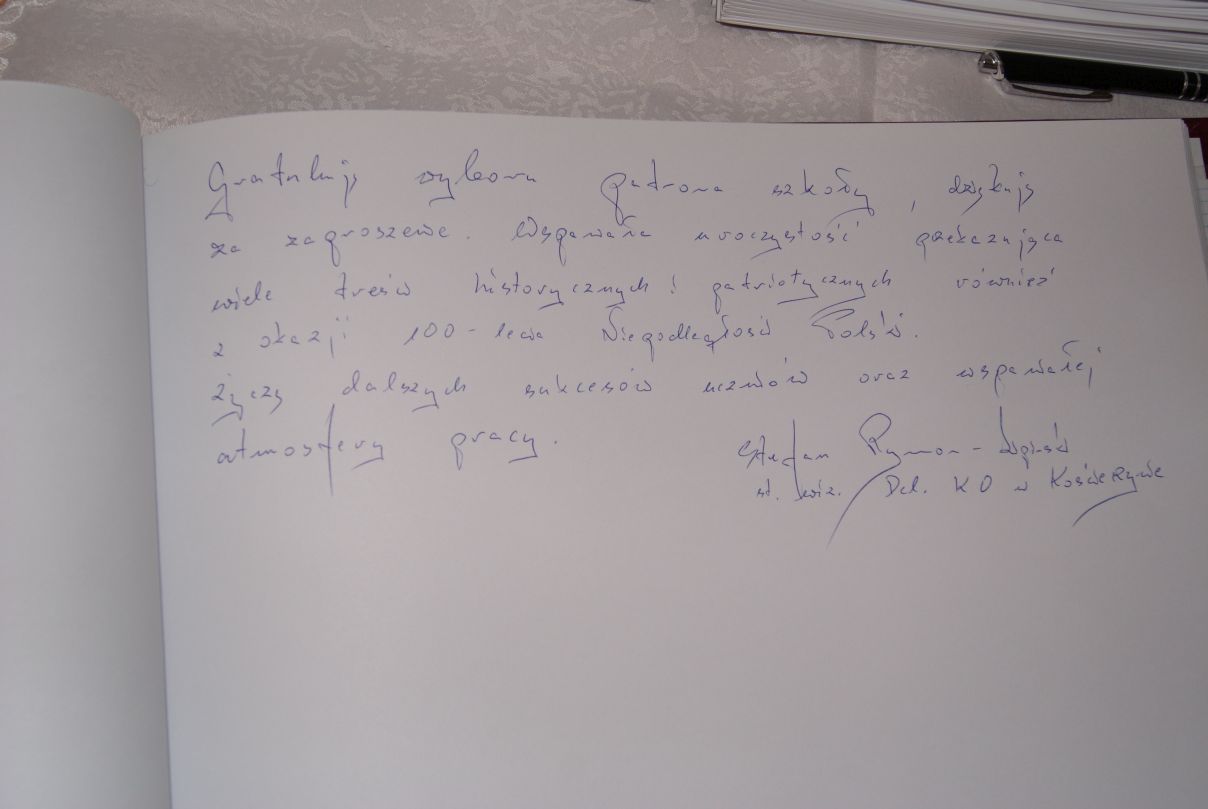 Gratuluję wyboru patrona szkoły, dziękuję
za zaproszenie. Wspaniała uroczystość przekazująca
wiele treści historycznych i patriotycznych również
z okazji 100-lecia Niepodległości Polski.
Życzę dalszych sukcesów uczniów oraz wspaniałej
atmosfery pracy.
Stefan Rymon-Lipiński
st. wiz. Del. KO w Kościerzynie